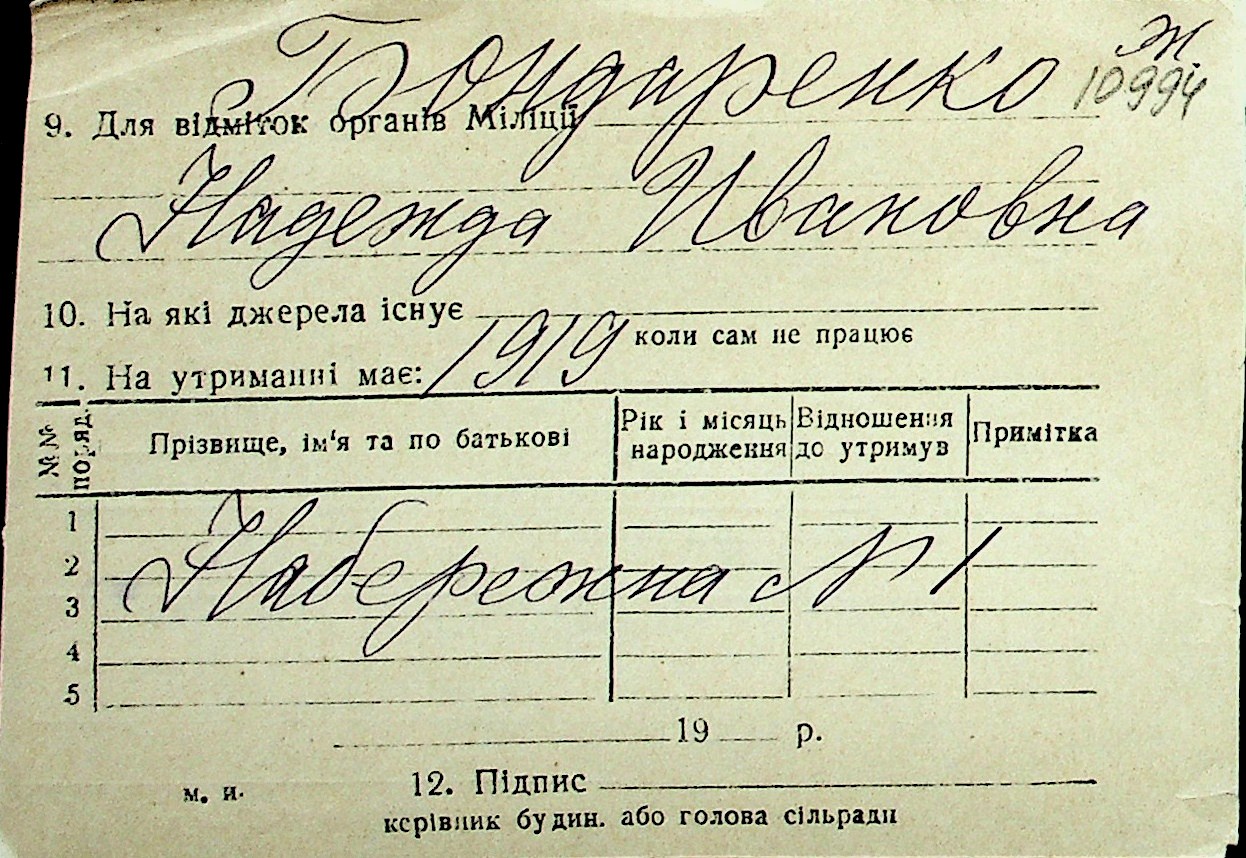 Бондаренко ж
10994
9. Для відміток органів Міліції
Надежда Ивановна
10. На які джерела існує
коли сам не працює
1919
11. На утриманні має:
№№ поряд.
Прізвище, ім'я та по батькові
Рік і місяць народження
Відношення до утримув
Примітка
1
2
Набережна N 1
3
4
5
19 р.
м. п.
12. Підпис
керівник будин. або голова сільради